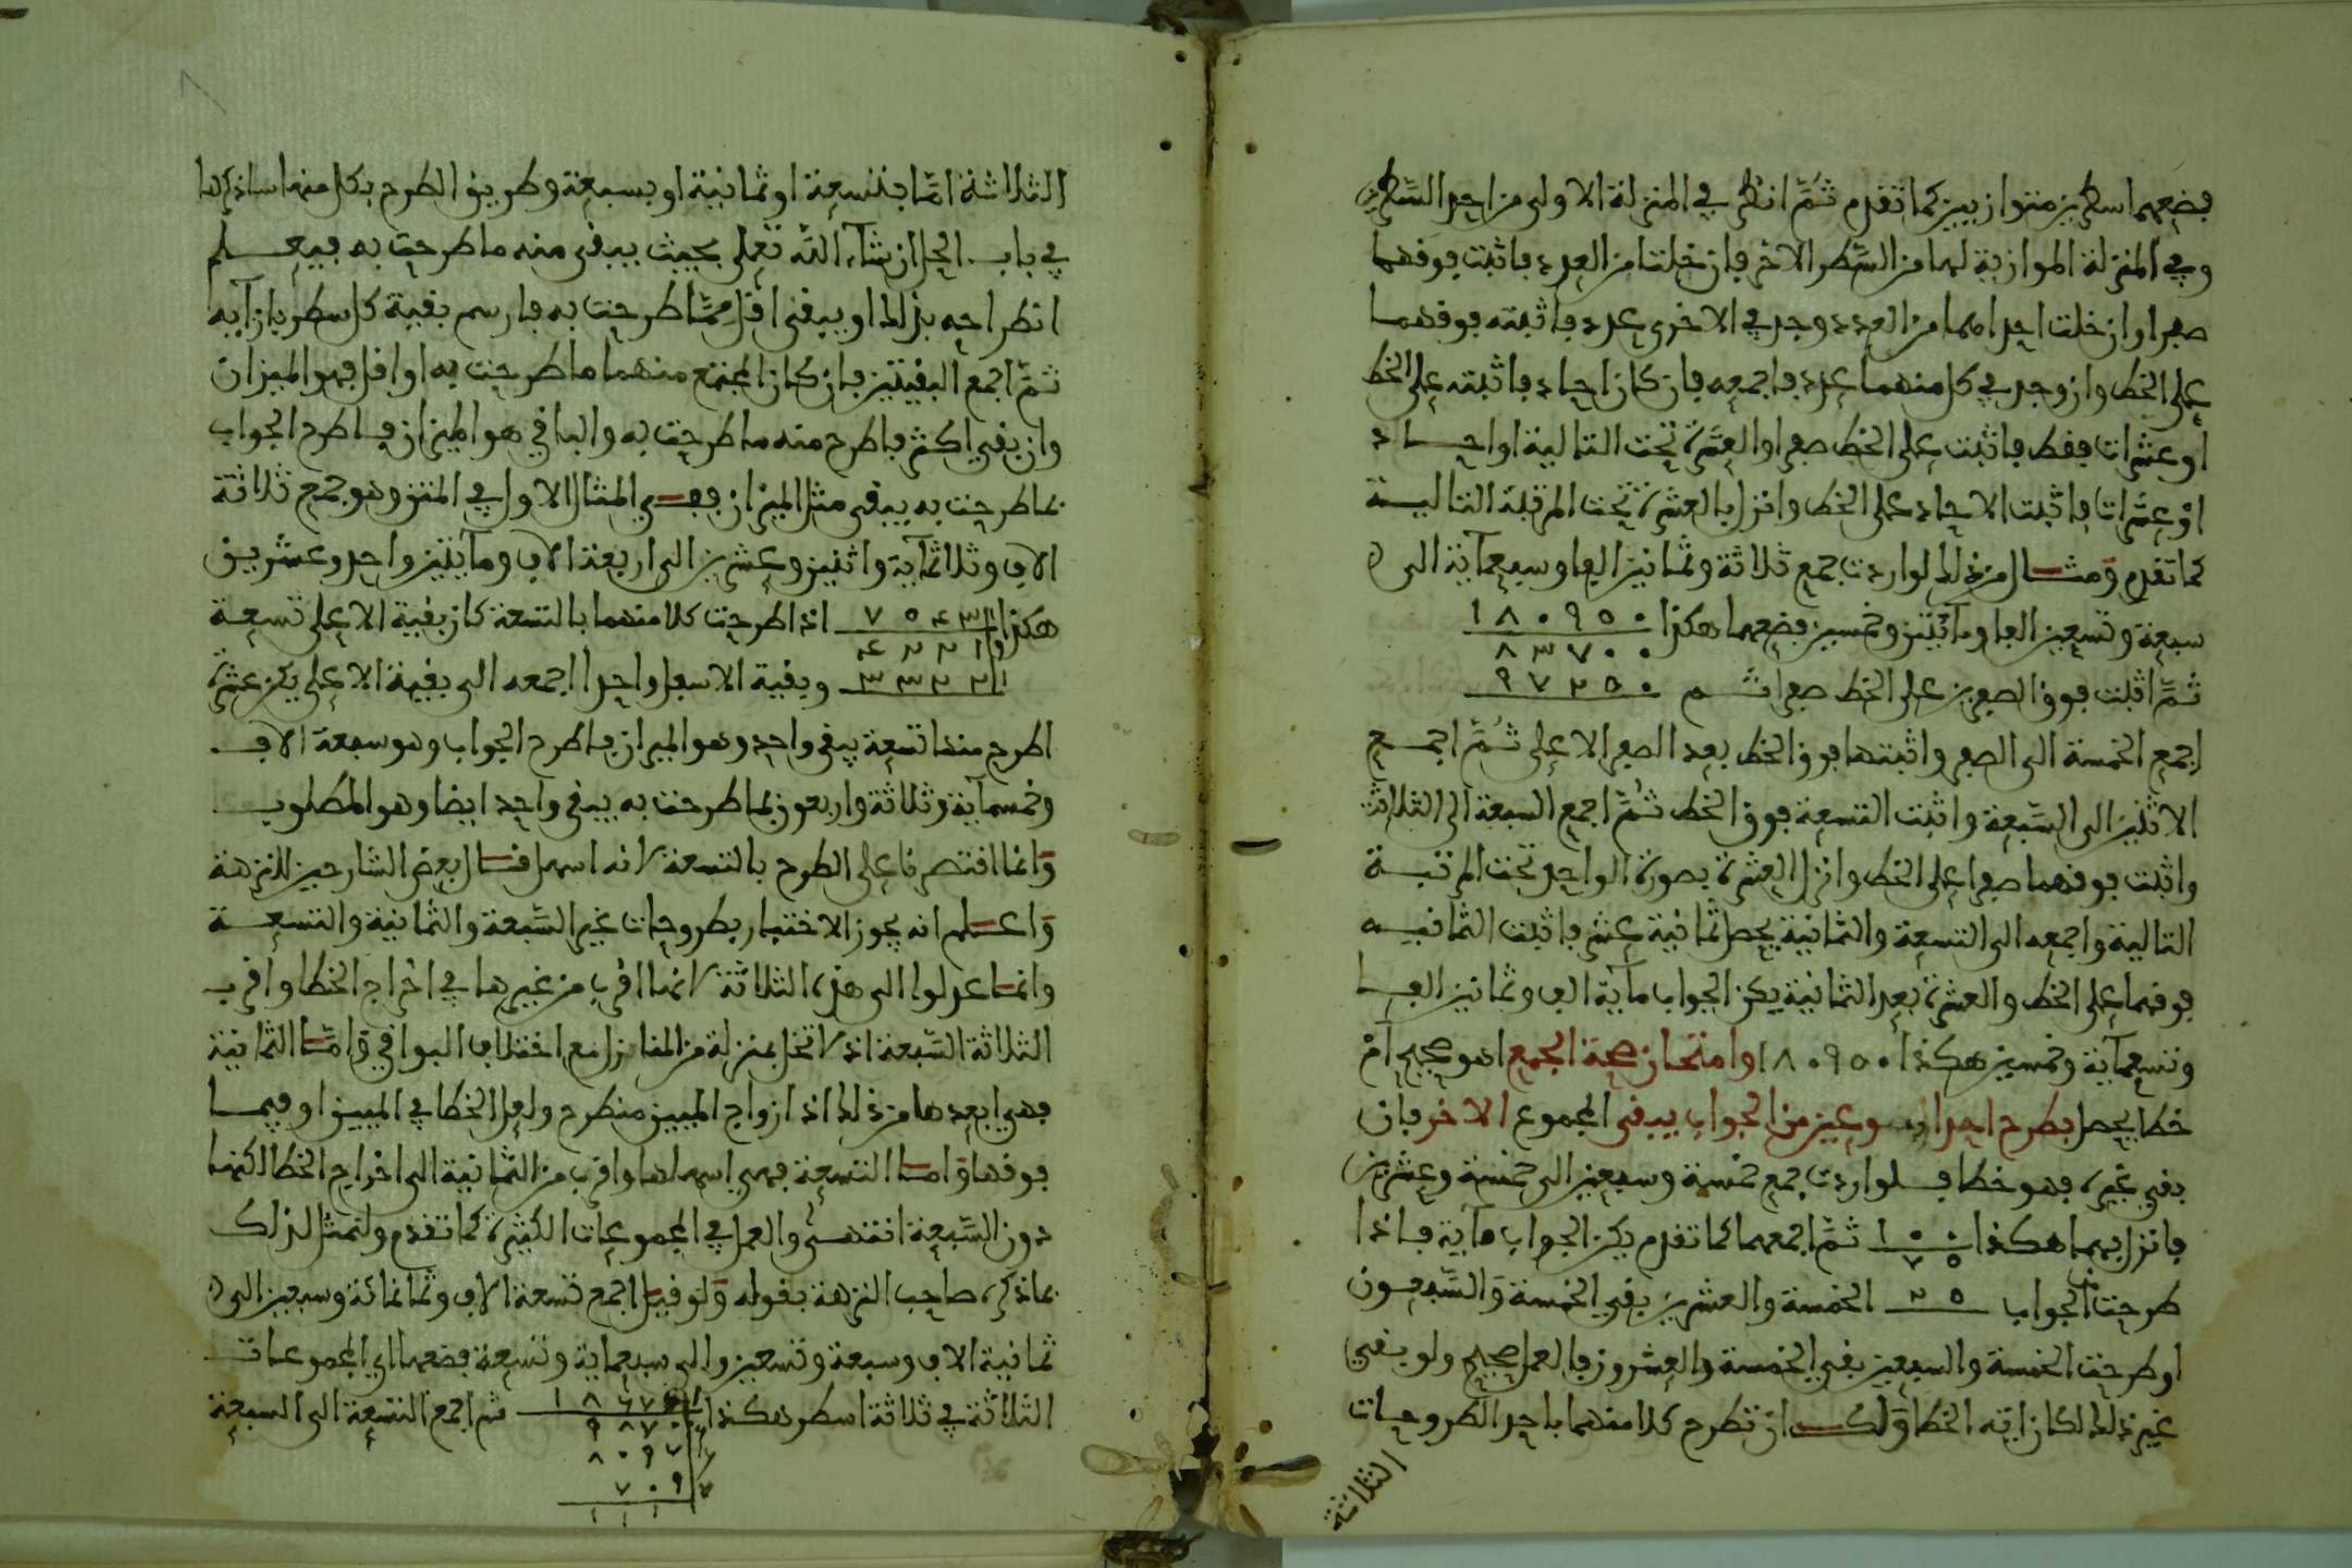 فضعهما سطرين متوازيين كما تقدم ثمّ انظر في المنزلة الاولى من احد السّطرين
وفي المنزلة الموازية لها من السّطر الاخر فان خلتا من العدد فاثبت فوقهما
صفرا وان خلت احداهما من العدد ووجد في الاخرى عدد فاثبته فوقهما
على الخط وان وجد في كل منهما عدد فاجمعه فان كان احاد فاثبته على الخط
او عشرات فقط فاثبت على الخط صفرا والعشرة تحت التالية او احاد
وعشرات فاثبت الاحاد على الخط وانزل بالعشرة تحت المرتبة التالية
كما تقدم ومثال من ذلك لو اردت جمع ثلاثة وثمانين الفا وسبعمآئة الى
سبعة وتسعين الفا ومآئتين وخمسين فضعهما هكذا ١٨٠٩٥٠
٨٣٧٠٠
ثمّ اثبت فوق الصفرين على الخط صفرا ثم ٩٧٢٥٠
اجمع الخمسة الى الصفر واثبتها فوق الخط بعد الصفر الاعلى ثمّ اجمع
الاثنين الى السّبعة واثبت التسعة فوق الخط ثمّ اجمع السبعة الى الثلاثة
واثبت فوقهما صفرا على الخط وانزل العشرة بصورة الواحد تحت المرتبة
التالية واجمعه الى التسعة والثمانية يحصل ثمانية عشر فاثبت الثمانية
فوقها على الخط والعشرة بعد الثمانية يكن الجواب مآية الف وثمانين الفا
وتسعمآية وخمسين هكذا ١٨٠٩٥٠ وامتحان صحة الجمع اهو صحيح أم
خطا يحصل بطرح احد المجموعين من الجواب يبقى المجموع الاخر فان
بقي غيره فهو خطا فلو اردت جمع خمسة وسبعين الى خمسة وعشرين
فانزل بهما هكذا ١٠٠ ثمّ اجمعهما كما تقدم يكن الجواب مآية فاذا
٧٥
طرحت من الجواب ٢٥ الخمسة والعشرين بقي الخمسة والسّبعون
او طرحت الخمسة والسبعين بقي الخمسة والعشرون فالعمل صحيح ولو بقي
غير ذلك لكان اية الخطا ولك ان تطرح كلا منهما باحد الطروحات
الثلاثة
الثلاثة امّا بتسعة او ثمانية او بسبعة وطريق الطرح بكل منها ساذكرها
في باب الحل ان شآء الله تعلى بحيث يبقى منه ما طرحت به فيعلم
انطراحه بذلك او يبقى اقل ممّا طرحت به فارسم بقية كل سطر بازآيه
ثمّ اجمع البقيتين فان كان المجتمع منهما ما طرحت به او اقل فهو الميزان
وان بقي اكثر فاطرح منه ما طرحت به والباقي هو الميزان فاطرح الجواب
بما طرحت به يبقى مثل الميزان ففي المثال الاول في المتن وهو جمع ثلاثة
الاف وثلاثمآية واثنين وعشرين الى اربعة الاف ومآيتين واحد وعشرين
هكذا ٧٥٤٣ اذا طرحت كلا منهما بالتسعة كان بقية الاعلى تسعة
٤٢٢١
٣٣٢٢ وبقية الاسفل واحدا اجمعه الى بقية الاعلى يكن عشرة
اطرح منها تسعة يبقى واحد وهو الميزان فاطرح الجواب وهو سبعة الاف
وخمسمآية وثلاثة واربعون بما طرحت به يبقى واحد ايضا وهو المطلوب
وانما اقتصرنا على الطرح بالتسعة لانه اسهل قال بعض الشارحين للنزهة
واعلم انه يجوز الاختبار بطروحات غير السّبعة والثمانية والتسعة
وانما عدلوا الى هذه الثلاثة لانها اقرب من غيرها في اخراج الخطا واقرب
الثلاثة السّبعة اذ لا تخل بمنزلة من المنازل مع اختلاف البواقي وامّا الثمانية
فهي ابعدها من ذلك اذ ازواج الميين منطرح ولعل الخطا في الميين او فيما
فوقها واما التسعة فهي اسهلها واقرب من الثمانية الى اخراج الخطا لكنها
دون السّبعة انتهى والعمل في المجموعات الكثيرة كما تقدم ولنمثل لذلك
بما ذكره صاحب النزهة بقوله ولو قيل اجمع تسعة الاف وثمانمائة وسبعين الى
ثمانية الاف وسبعة وتسعين والى سبعماية وتسعة فضعها اي المجموعات
الثلاثة في ثلاثة اسطر هكذا ١٨٦٧٦ ثم اجمع التسعة الى السبعة
٩٨٧٠
٨٠٩٧
٧٠٩
١ ١ ١